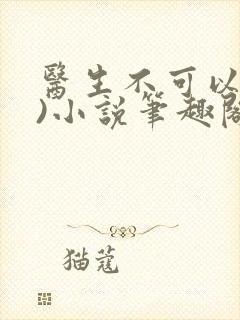 醫生不可以
)小說筆趣閣
猫蔻